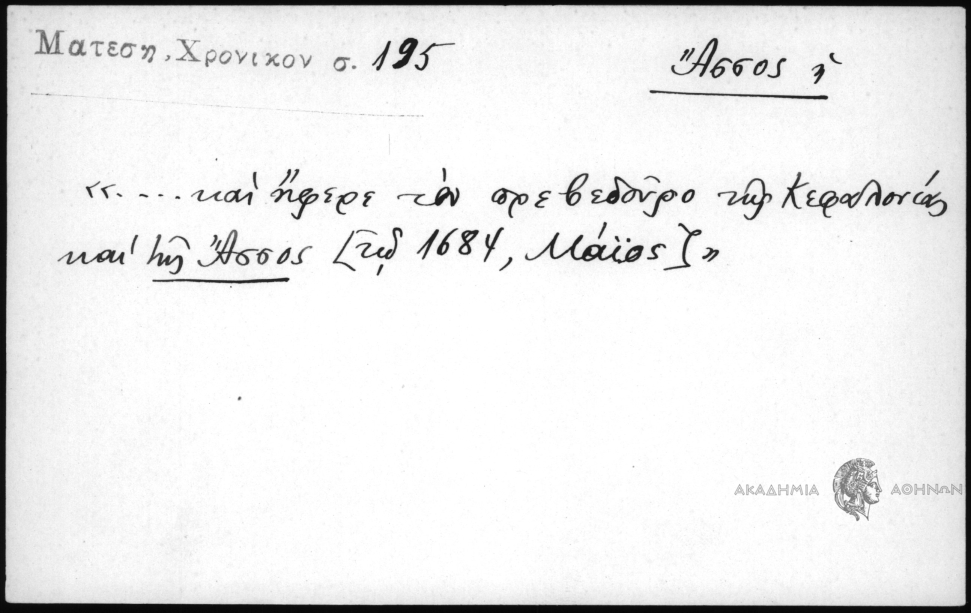 Ματεση, Χρονικον σ. 195
Ἄσσος ἡ
«.... καὶ ἤφερε τὸν πρεβεδοῦρο τῆς Κεφαλονιᾶς
καὶ τῆς Ἄσσος [τῷ 1684, Μάϊος]»
ΑΚΑΔΗΜΙΑ ΑΘΗΝΩΝ